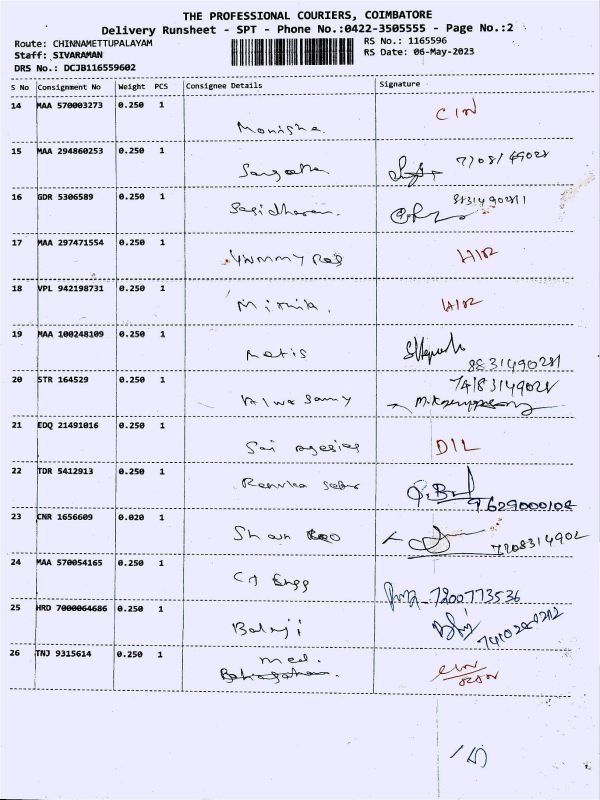 THE PROFESSIONAL COURIERS, COIMBATORE
Delivery Runsheet - SPT - Phone No.:0422-3505555 - Page No.:2
Route: CHINNAMETTUPALAYAM
Staff: SIVARAMAN
DRS No.: DCJB116559602
RS No.: 1165596
RS Date: 06-May-2023
S No Consignment No Weight PCS Consignee Details Signature
14 MAA 570003273 0.250 1
Monisha
15 MAA 294860253 0.250 1
Sangeetha
16 GDR 5306589 0.250 1
Sasidharan.
17 MAA 297471554 0.250 1
18 VPL 942198731 0.250 1
19 MAA 100248109 0.250 1
8831490281
20 STR 164529 0.250 1
21 EDQ 21491016 0.250 1
Sai
DIL
22 TDR 5412913 0.250 1
Renuka
9629000108
23 CNR 1656609 0.020 1
7208314902
24 MAA 570054165 0.250 1
Engg
7200773536
25 HRD 7000064686 0.250 1
Balaji
26 TNJ 9315614 0.250 1
med.